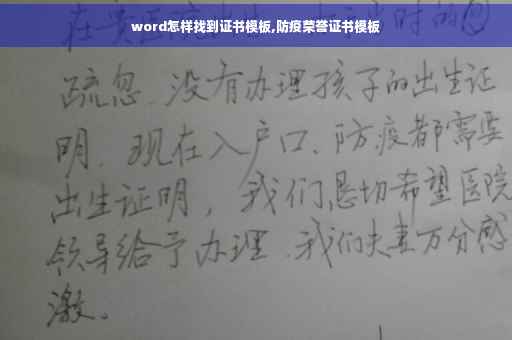 word怎样找到证书模板,防疫荣誉证书模板
疏忽.没有办理孩子的出生证
明.现在入户口、防疫都需要
出生证明，我们恳切希望医院
领导给予办理.我们夫妻万分感
激。